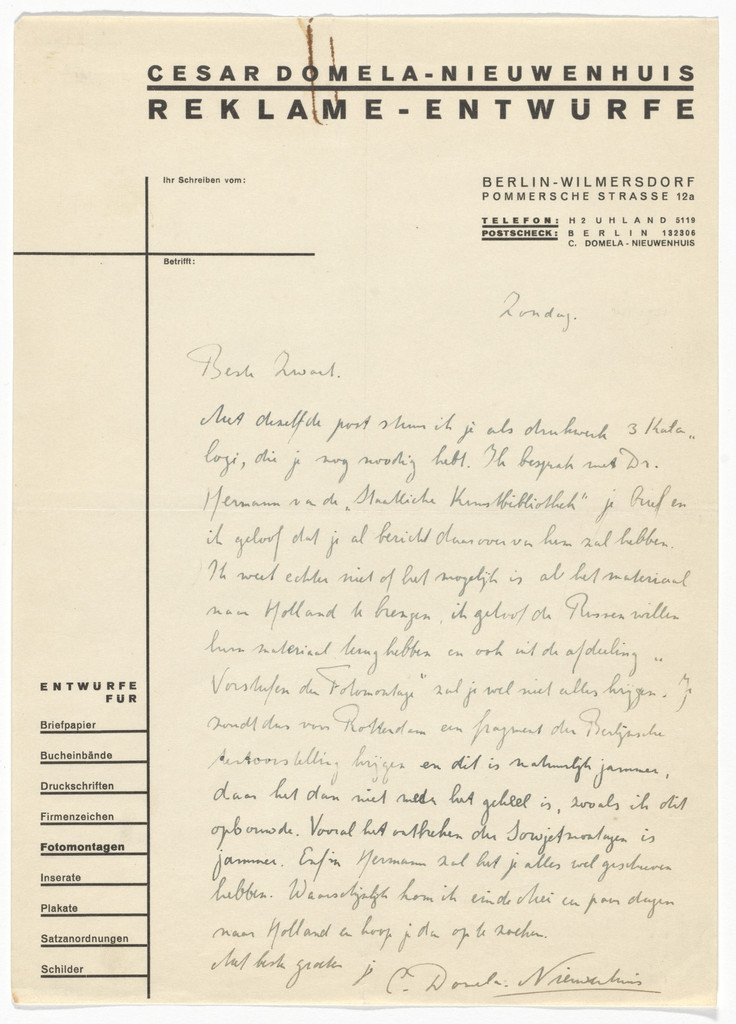 CESAR DOMELA-NIEUWENHUIS
REKLAME-ENTWÜRFE
Ihr Schreiben vom:
BERLIN-WILMERSDORF
POMMERSCHE STRASSE 12a
TELEFON: H2 UHLAND 5119
POSTSCHECK: BERLIN 132306
C. DOMELA-NIEUWENHUIS
Betrifft:
Zondag.
Beste Zwart.
Met dezelfde post stuur ik je als drukwerk 3 Kata„
logi, die je nog noodig hebt. Ik besprak met Dr.
Hermann van de „Staatliche Kunstbibliothek" je brief en
ik geloof dat je al bericht daarover van hem zal hebben.
Ik weet echter niet of het mogelijk is al het materiaal
naar Holland te brengen, ik geloof de Russen willen
hun materiaal terug hebben en ook uit de afdeeling „
Vorstufen der Fotomontage" zal je wel niet alles krijgen. Je
zoudt dus voor Rotterdam een fragment der Berlijnsche
tentoonstelling krijgen en dit is natuurlijk jammer,
daar het dan niet meer het geheel is, zooals ik dit
opbouwde. Vooral het ontbreken der Sowjetmontagen is
jammer. Enfin Hermann zal het je alles wel geschreven
hebben. Waarschijnlijk kom ik einde Mei een paar dagen
naar Holland en hoop je dan op te zoeken.
Met beste groeten je
C. Domela-Nieuwenhuis
ENTWÜRFE
FÜR
Briefpapier
Bucheinbände
Druckschriften
Firmenzeichen
Fotomontagen
Inserate
Plakate
Satzanordnungen
Schilder